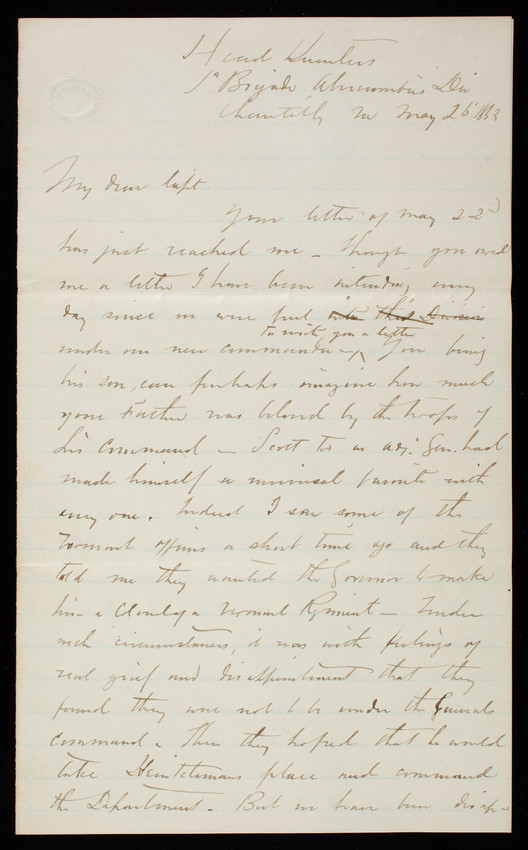 Head Quarters
1st Brigade Abercrombie's Div
Chantilly Va May 26 1863
My dear Capt.
Your letter of May 22d
has just reached me – Though you owed
me a letter I have been intending every
day since we were put into this Division
to write you a letter
under our new commander –, You being
his son, can perhaps imagine how much
your Father was beloved by the troops of
his command – Scott too as adj. Gen. had
made himself a universal favorite with
every one. Indeed I saw some of the
Vermont officers a short time ago and they
told me they wanted the Governor to make
him a Colonel of a Vermont Regiment – Under
such circumstances, it was with feelings of
real grief and disappointment that they
found they were not to be under the Generals
command. Then they hoped that he would
take Heintzelmans place and command
the Department – But we have been disap-